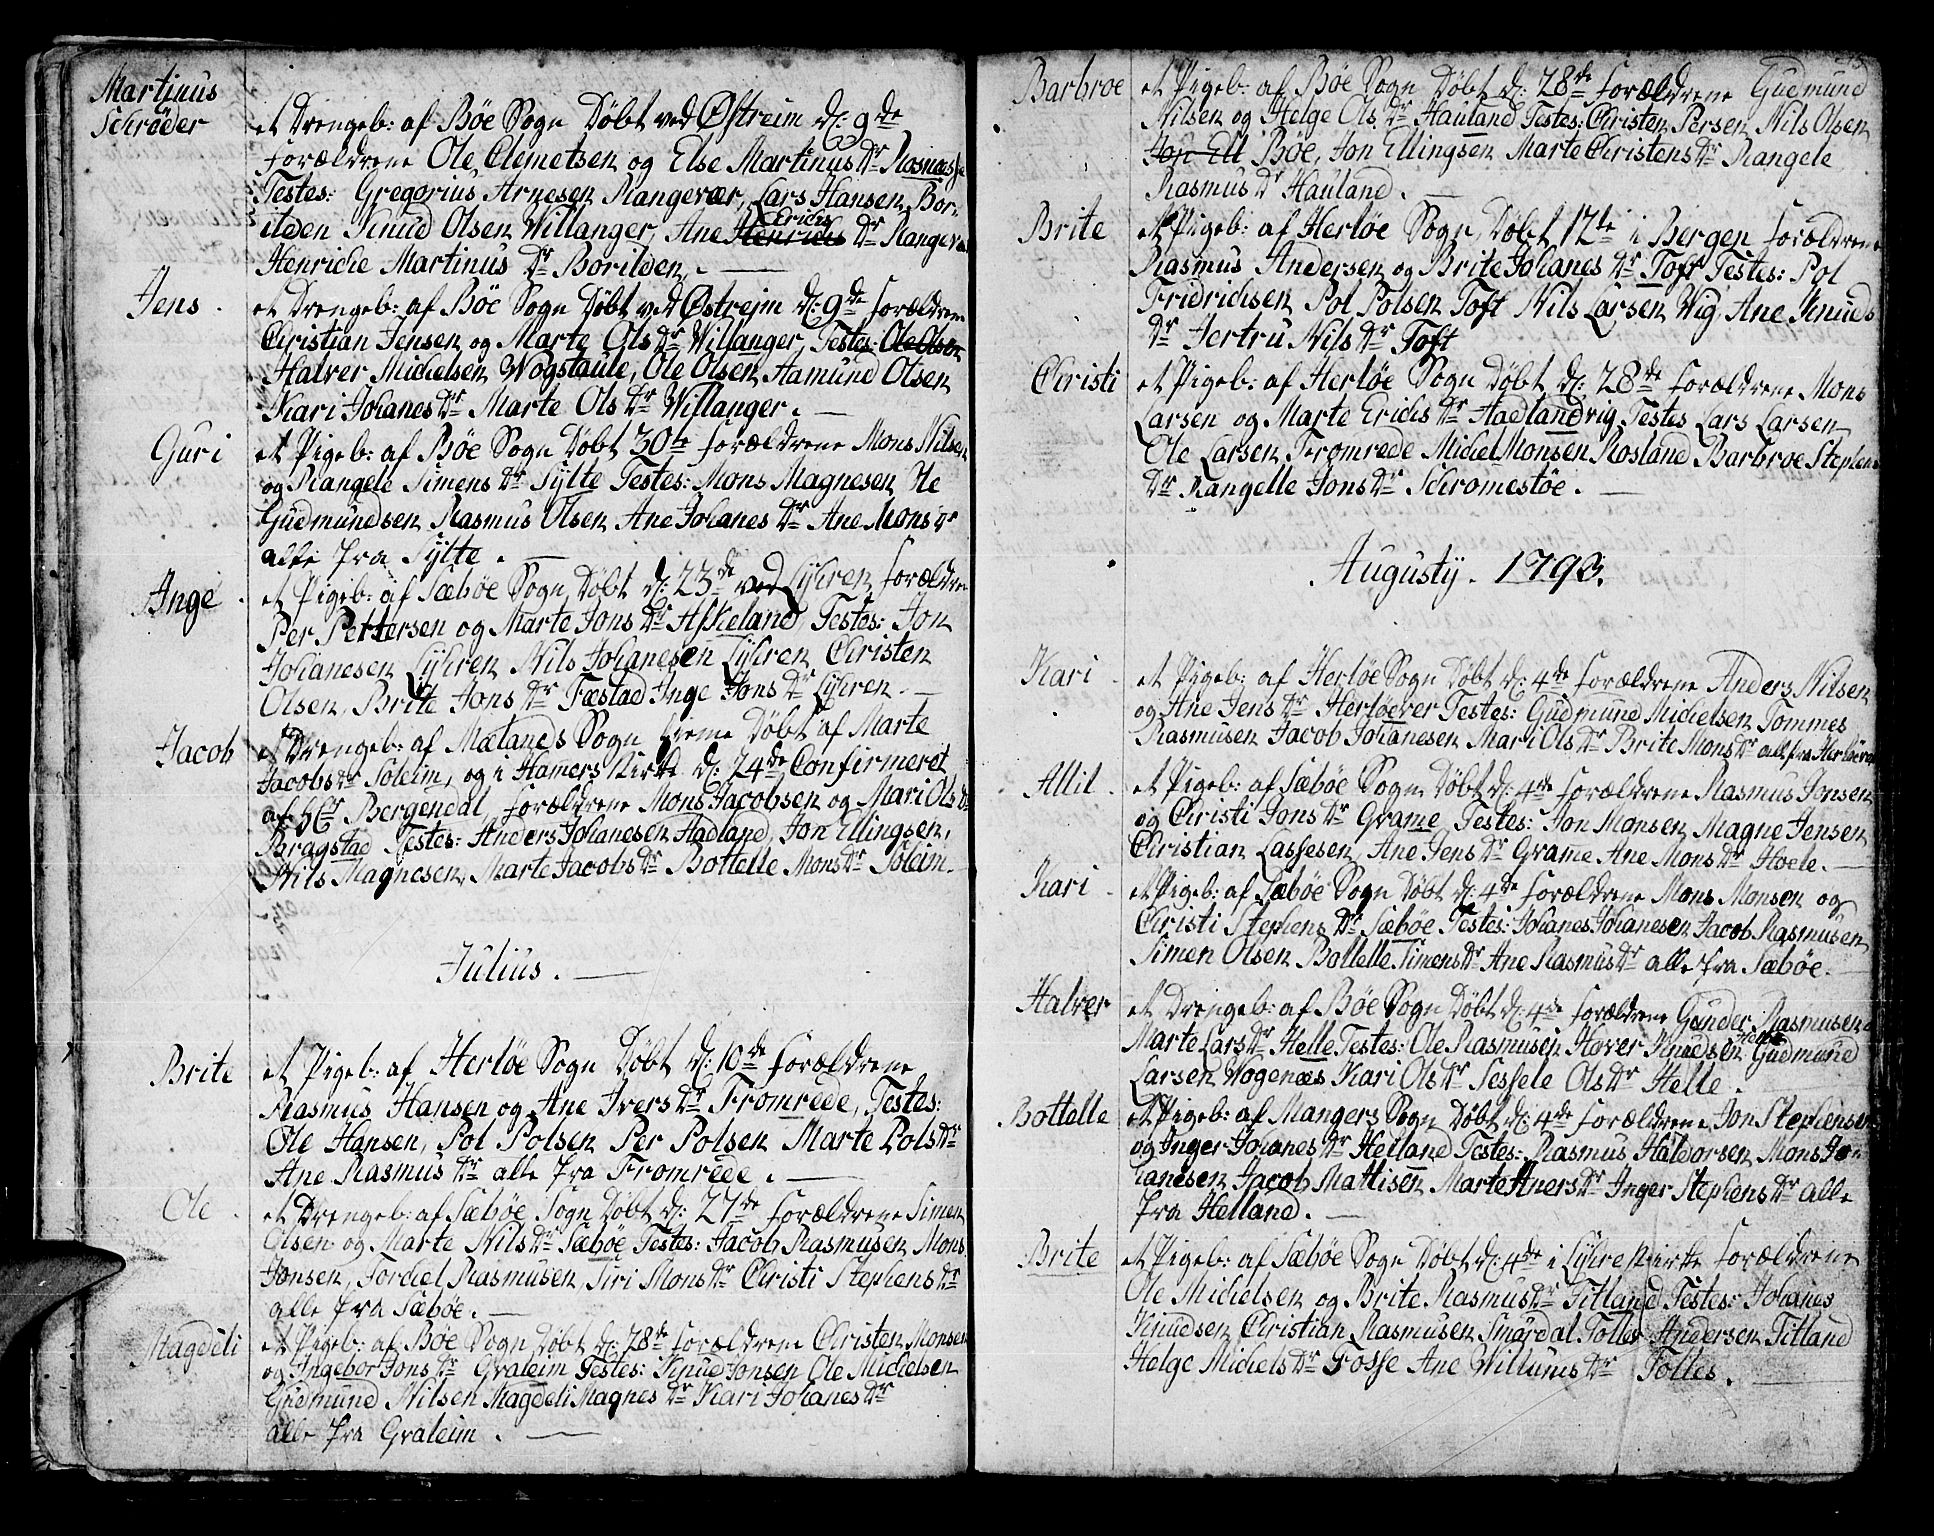 Martinus
Schrøder
et Drengeb: af Bøe Sogn Døbt ved Østreim d: 9de
Forældrene Ole Clemetsen og Else Martinus Dr
Testes: Gregorius Arnesen Rangevær, Lars Hansen Bor-
ilden Knud Olsen Willanger, Ane Henrichs Erichs Dr Rangevær
Henriche Martinus Dr Borilden. —
Jens .
et Drengeb: af Bøe Sogn Døbt ved Østreim d: 9de Forældrene
Christian Jensen og Marte Ols Dr Willanger, Testes: Ole Olsen
Halver Michelsen Wogstaule, Ole Olsen Aamund Olsen
Kari Johanes Dr Marte Ols Dr Willanger. —
Guri
et Pigeb: af Bøe Sogn Døbt 30te Forældrene Mons Nilsen
og Rangele Simens Dr Sylte Testes: Mons Magnesen Ole
Gudmundsen Rasmus Olsen Ane Johanes Dr Ane Mons Dr
alle fra Sylte. —
Ange .
et Pigeb: af Sæbøe Sogn Døbt d: 23de ved Lyhren Forældrene
Per Pettersen og Marte Jons Dr Askeland, Testes: Jon
Johanesen Lyhren Nils Johanesen Lyhren Christen
Olsen, Brite Jons Dr Fæstad Inge Jons Dr Lyhren. —
Jacob
et Drengeb: af Mælands Sogn Hieme Døbt af Marte
Jacobs Dr Soleim, og i Hamers Kirke d: 24de Confirmeret
af Hr Bergendal, Forældrene Mons Jacobsen og Mari Ols Dr
Bragstad Testes: Anders Johanesen Hadland, Jon Ellingsen,
Nils Magnesen, Marte Jacobs Dr Bottelle Mons Dr Soleim. —
Julius. —
Brite
et Pigeb: af Herløe Sogn Døbt d: 10de Forældrene
Rasmus Hansen og Ane Ivers Dr Fromrede, Testes:
Ole Hansen, Pol Polsen Per Polsen Marte Pols Dr
Ane Rasmus Dr alle fra Fromrede. —
Ole .
et Drengeb: af Sæbøe Sogn Døbt d: 27de Forældrene Simen
Olsen og Marte Nils Dr Sæbøe Testes: Jacob Rasmusen Mons
Jonsen, Torchel Rasmusen, Siri Mons Dr Christi Stephens Dr
alle fra Sæbøe. —
Magdeli
et Pigeb: af Bøe Sogn Døbt d: 28de Forældrene Christen Monsen
og Ingebor Jons Dr Graleim Testes: Knud Jonsen Ole Michelsen
Gudmund Nilsen Magdeli Magnes Dr Kari Johanes Dr
alle fra Graleim. —
Barbroe
et Pigeb: af Bøe Sogn Døbt d: 28de Forældrene Gudmund
Nilsen og Helge Ols Dr Hauland Testes: Christen Persen Nils Olsen
Jon Ell Bøe, Jon Ellingsen Marte Christens Dr Rangele
Rasmus Dr Hauland. —
Brite
et Pigeb: af Herløe Sogn, Døbt 12te i Bergen Forældrene
Rasmus Andersen og Brite Johanes Dr Toft Testes: Pol
Fridrichsen Pol Polsen Toft Nils Larsen Wig Ane Knuds
Dr Jertru Nils Dr Toft
Christi
et Pigeb: af Herløe Sogn Døbt d: 28de Forældrene Mons
Larsen og Marte Erichs Dr Hadlandvig Testes Lars Larsen
Ole Larsen Fromrede Michel Monsen Rosland Barbroe Stephens
Dr Rangelle Jons Dr Schromestøe. —
Augusty. 1793.
Kari .
et Pigeb: af Herløe Sogn Døbt d: 4de Forældrene Anders Nilsen
og Ane Jens Dr Herløever Testes: Gudmund Michelsen Tommes
Rasmusen Jacob Johanesen Mari Ols Dr Brite Mons Dr all fra Herløever
Allil .
et Pigeb: af Sæbøe Sogn Døbt d: 4de Forældrene Rasmus Jonsen
og Christi Jons Dr Grame Testes: Jon Monsen Magne Jensen
Christian Lassesen, Ane Jens Dr Grame Ane Mons Dr Hoele. —
Kari .
et Pigeb: af Sæbøe Sogn Døbt d: 4de Forældrene Mons Monsen og
Christi Stephens Dr Sæbøe Testes: Johanes Johanesen Jacob Rasmusen
Simen Olsen Bottelle Simens Dr Ane Rasmus Dr alle fra Sæbøe. —
Halver
et Drengeb: af Bøe Sogn Døbt d: 4de Forældrene Gunder Rasmusen
Marte Lars Dr Helle Testes: Ole Rasmusen Haver Knudsen Helle Gudmund
Larsen Vogenæs Kari Ols Dr Sessele Ols Dr Helle.
Bottelle
et Pigeb: af Mangers Sogn Døbt d: 4de Forældrene Jon Stephensen
og Inger Johanes Dr Helland Testes: Rasmus Haldorsen Mons Jo-
hanesen Jacob Mattisen Marte Dr Inger Stephens Dr alle
fra Helland. —
Brite
et Pigeb: af Sæbøe Sogn Døbt d: 4de i Lyhre Kirke Forældrene
Ole Michelsen og Brite Rasmus Dr Titland Testes: Johanes
Knudsen Christian Rasmusen Smørdal Andersen Titland
Helge Michels Dr Fosse Ane Willums Dr Tolles. —